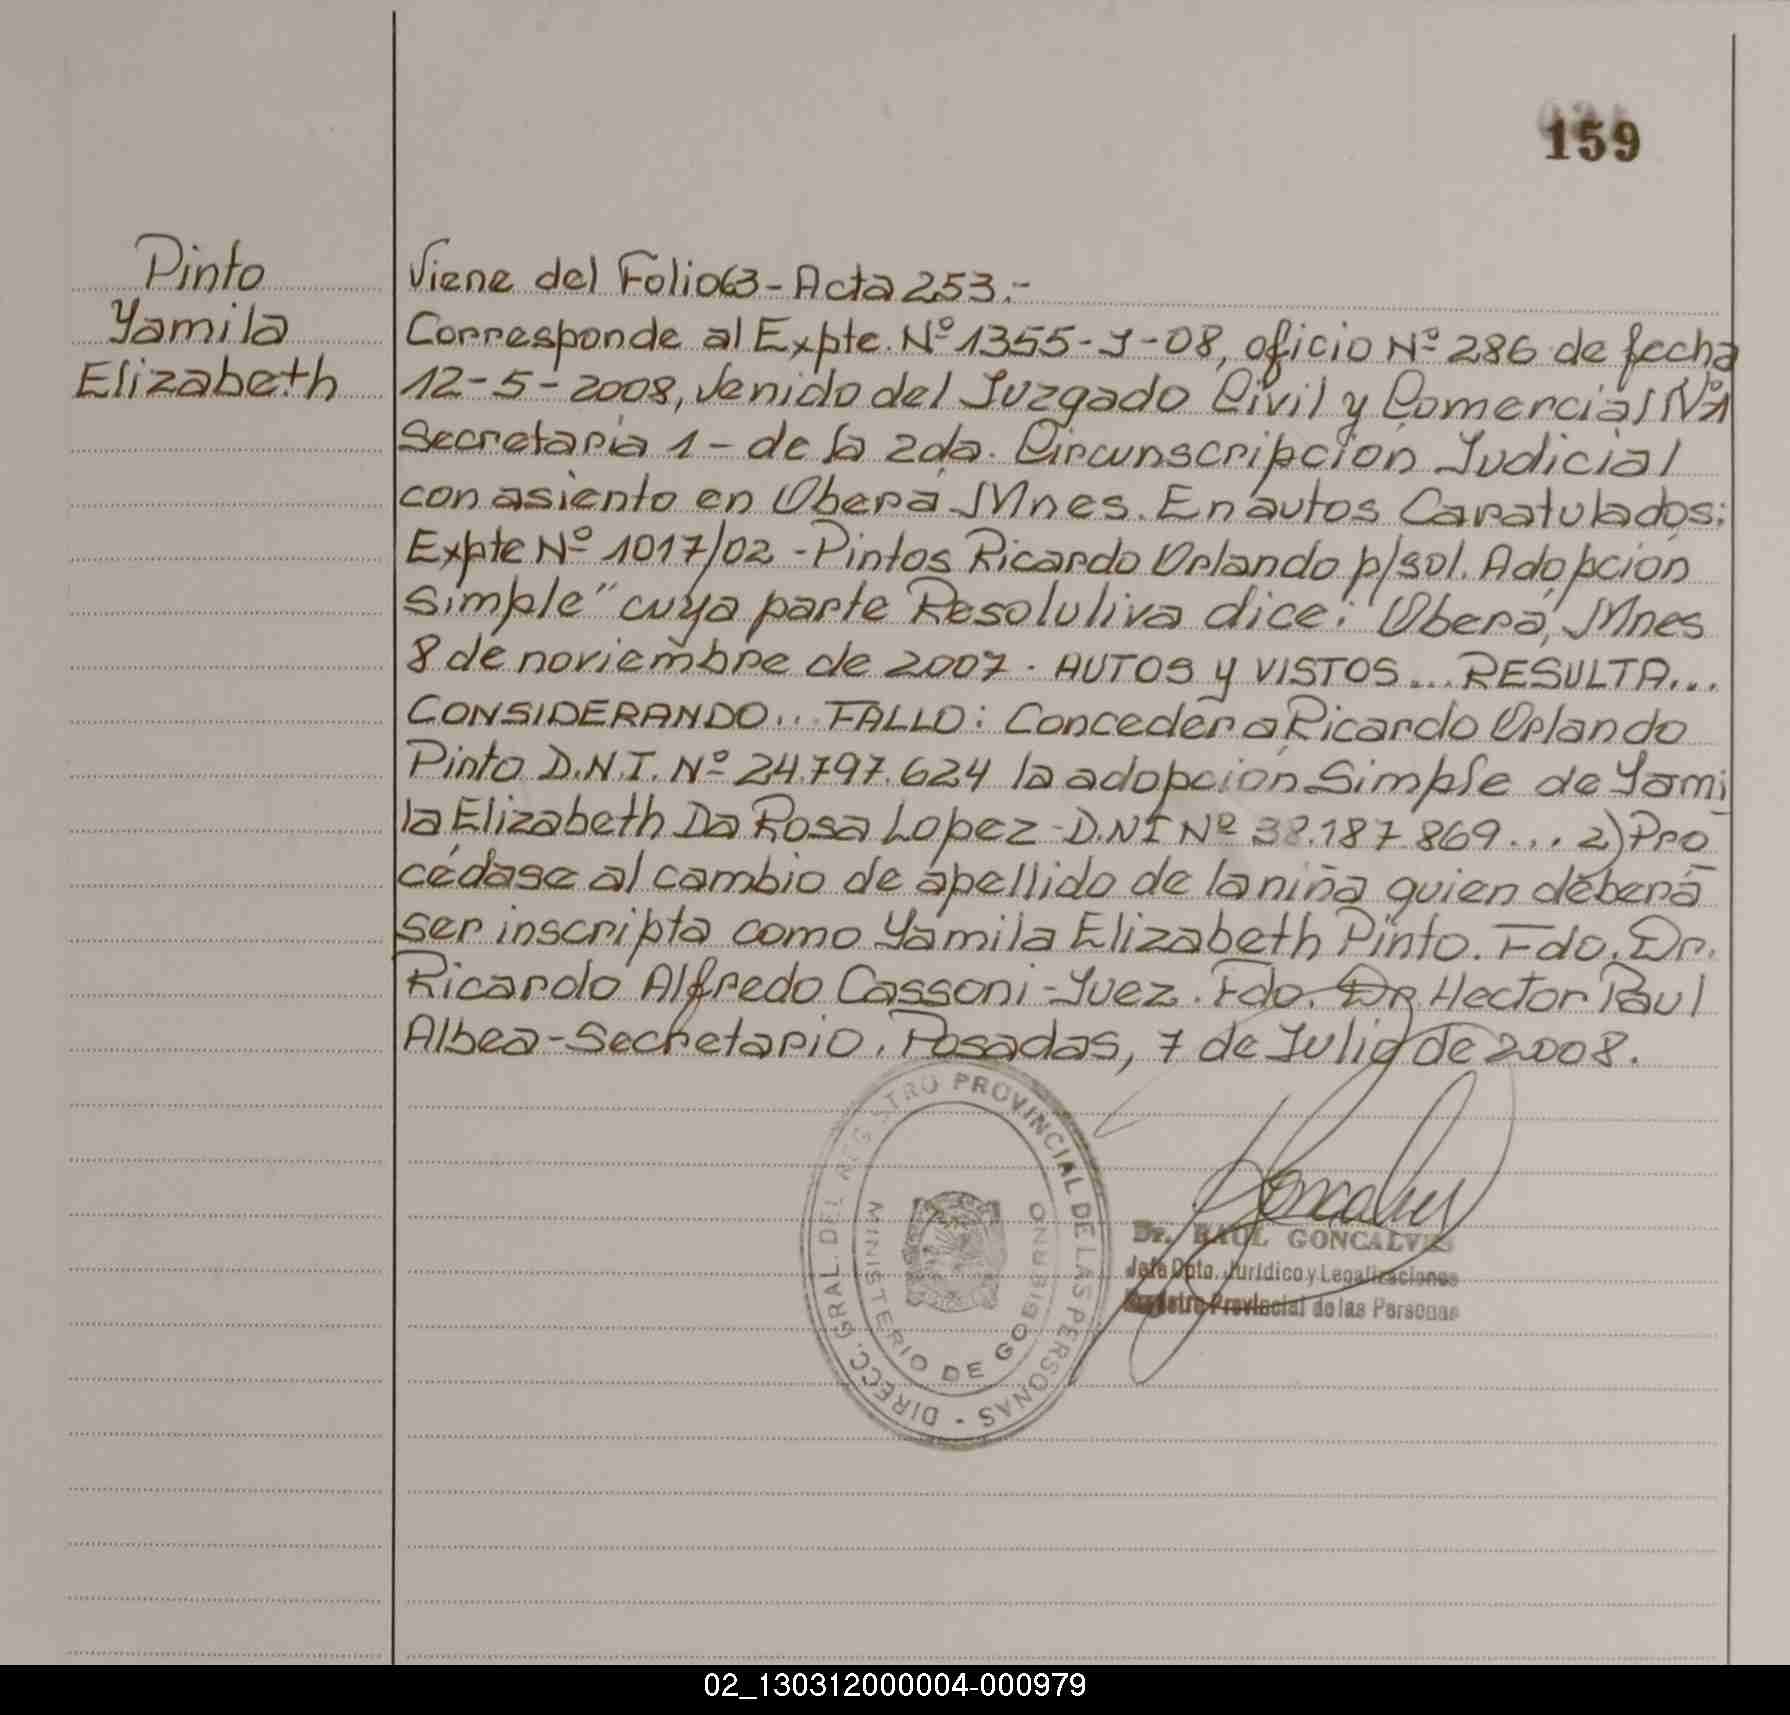 159
Pinto
Yamila
Elizabeth
Viene del Folio 63 - Acta 253.-
Corresponde al Expte. Nº 1355-J-08, oficio Nº 286 de fecha
12-5-2008, venido del Juzgado Civil y Comercial Nº1
Secretaria 1 - de la 2da. Circunscripción Judicial
con asiento en Oberá Mnes. En autos Caratulados:
Expte Nº 1017/02 - Pintos Ricardo Orlando p/sol. Adopción
Simple" cuya parte Resolutiva dice: Oberá, Mnes
8 de noviembre de 2007. AUTOS y VISTOS... RESULTA...
CONSIDERANDO... FALLO: Conceder a Ricardo Orlando
Pinto D.N.I. Nº 24.797.624 la adopción Simple de Yami
la Elizabeth Da Rosa Lopez - D.N.I Nº 38.187.869... 2) Pro
cédase al cambio de apellido de la niña quien deberá
ser inscripta como Yamila Elizabeth Pinto. Fdo. Dr.
Ricardo Alfredo Cassoni - Juez. Fdo. Dr Hector Raul
Albea - Secretario. Posadas, 7 de Julio de 2008.
DIRECC. GRAL. DEL REGISTRO PROVINCIAL DE LAS PERSONAS -
MINISTERIO DE GOBIERNO
Dr. RAUL GONCALVES
Jefe Dpto. Jurídico y Legalizaciones
Registro Provincial de las Personas
02_130312000004-000979